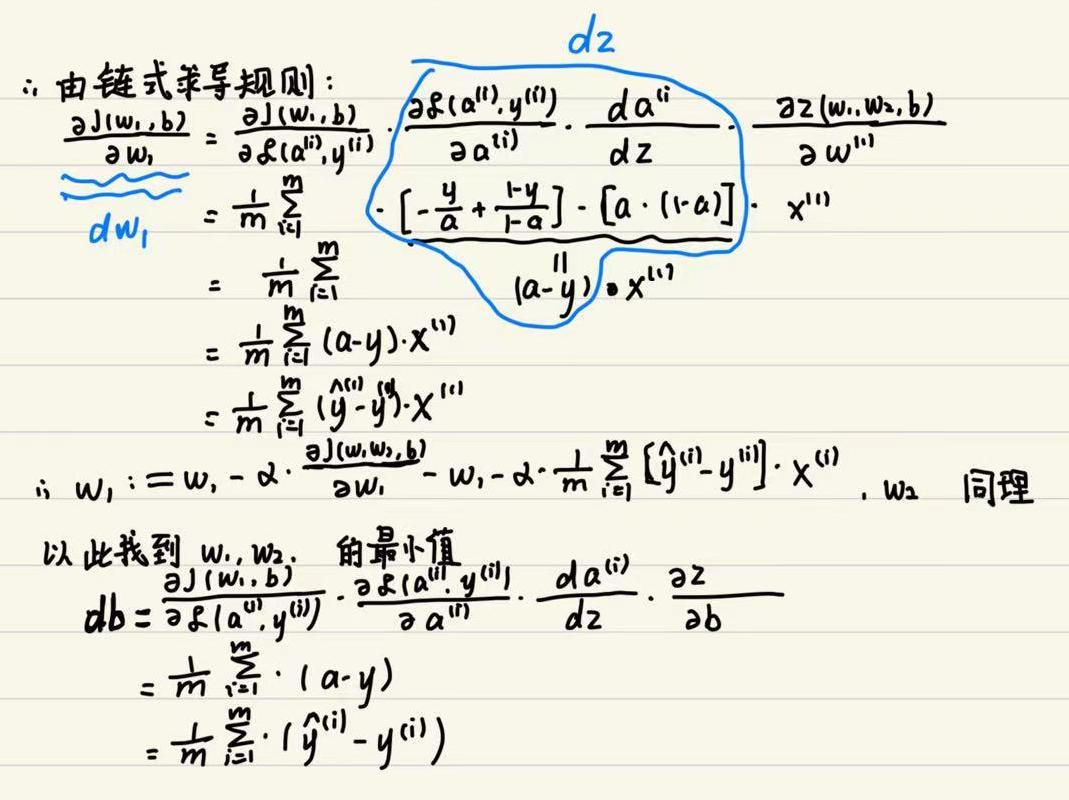 dz
∴ 由链式求导规则:
∂J(w₁,b)/∂w₁ = ∂J(w₁,b)/∂ℒ(a⁽ⁱ⁾,y⁽ⁱ⁾) · ∂ℒ(a⁽ⁱ⁾,y⁽ⁱ⁾)/∂a⁽ⁱ⁾ · da⁽ⁱ/dz · ∂z(w₁,w₂,b)/∂w⁽¹⁾
dw₁
= 1/m Σᵢ₌₁ᵐ · [-y/a + (1-y)/(1-a)] - [a·(1-a)] · x⁽¹⁾
= 1/m Σᵢ₌₁ᵐ (a-y) · x⁽¹⁾
= 1/m Σᵢ₌₁ᵐ (a-y)·x⁽¹⁾
= 1/m Σᵢ₌₁ᵐ (ŷ⁽ⁱ⁾-y⁽ⁱ⁾)·x⁽¹⁾
∴ w₁ := w₁ - α · ∂J(w₁w₂,b)/∂w₁ - w₁ - α · 1/m Σᵢ₌₁ᵐ [ŷ⁽ⁱ⁾-y⁽ⁱ⁾] · x⁽ⁱ⁾ , w₂ 同理
以此找到 w₁,w₂. 的最小值
db = ∂J(w₁,b)/∂ℒ(a⁽ⁱ⁾,y⁽ⁱ⁾) · ∂ℒ(a⁽ⁱ⁾,y⁽ⁱ⁾)/∂a⁽ⁱ⁾ · da⁽ⁱ⁾/dz · ∂z/∂b
= 1/m Σᵢ₌₁ᵐ · (a-y)
= 1/m Σᵢ₌₁ᵐ · (ŷ⁽ⁱ⁾ - y⁽ⁱ⁾)